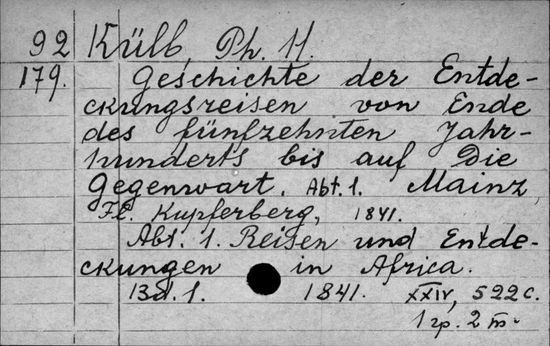 92 Külb, Ph. H.
179. Geschichte der Entde-
ckungsreisen von Ende
des fünfzehnten Jahr-
hunderts bis auf Die
Gegenwart. Abt. 1. Mainz,
Fl. Kupferberg, 1841.
Abt. 1. Reisen und Entde-
ckungen in Africa.
Bd. 1. 1841. XXIV, 522 c.
1 гр. 2 т.